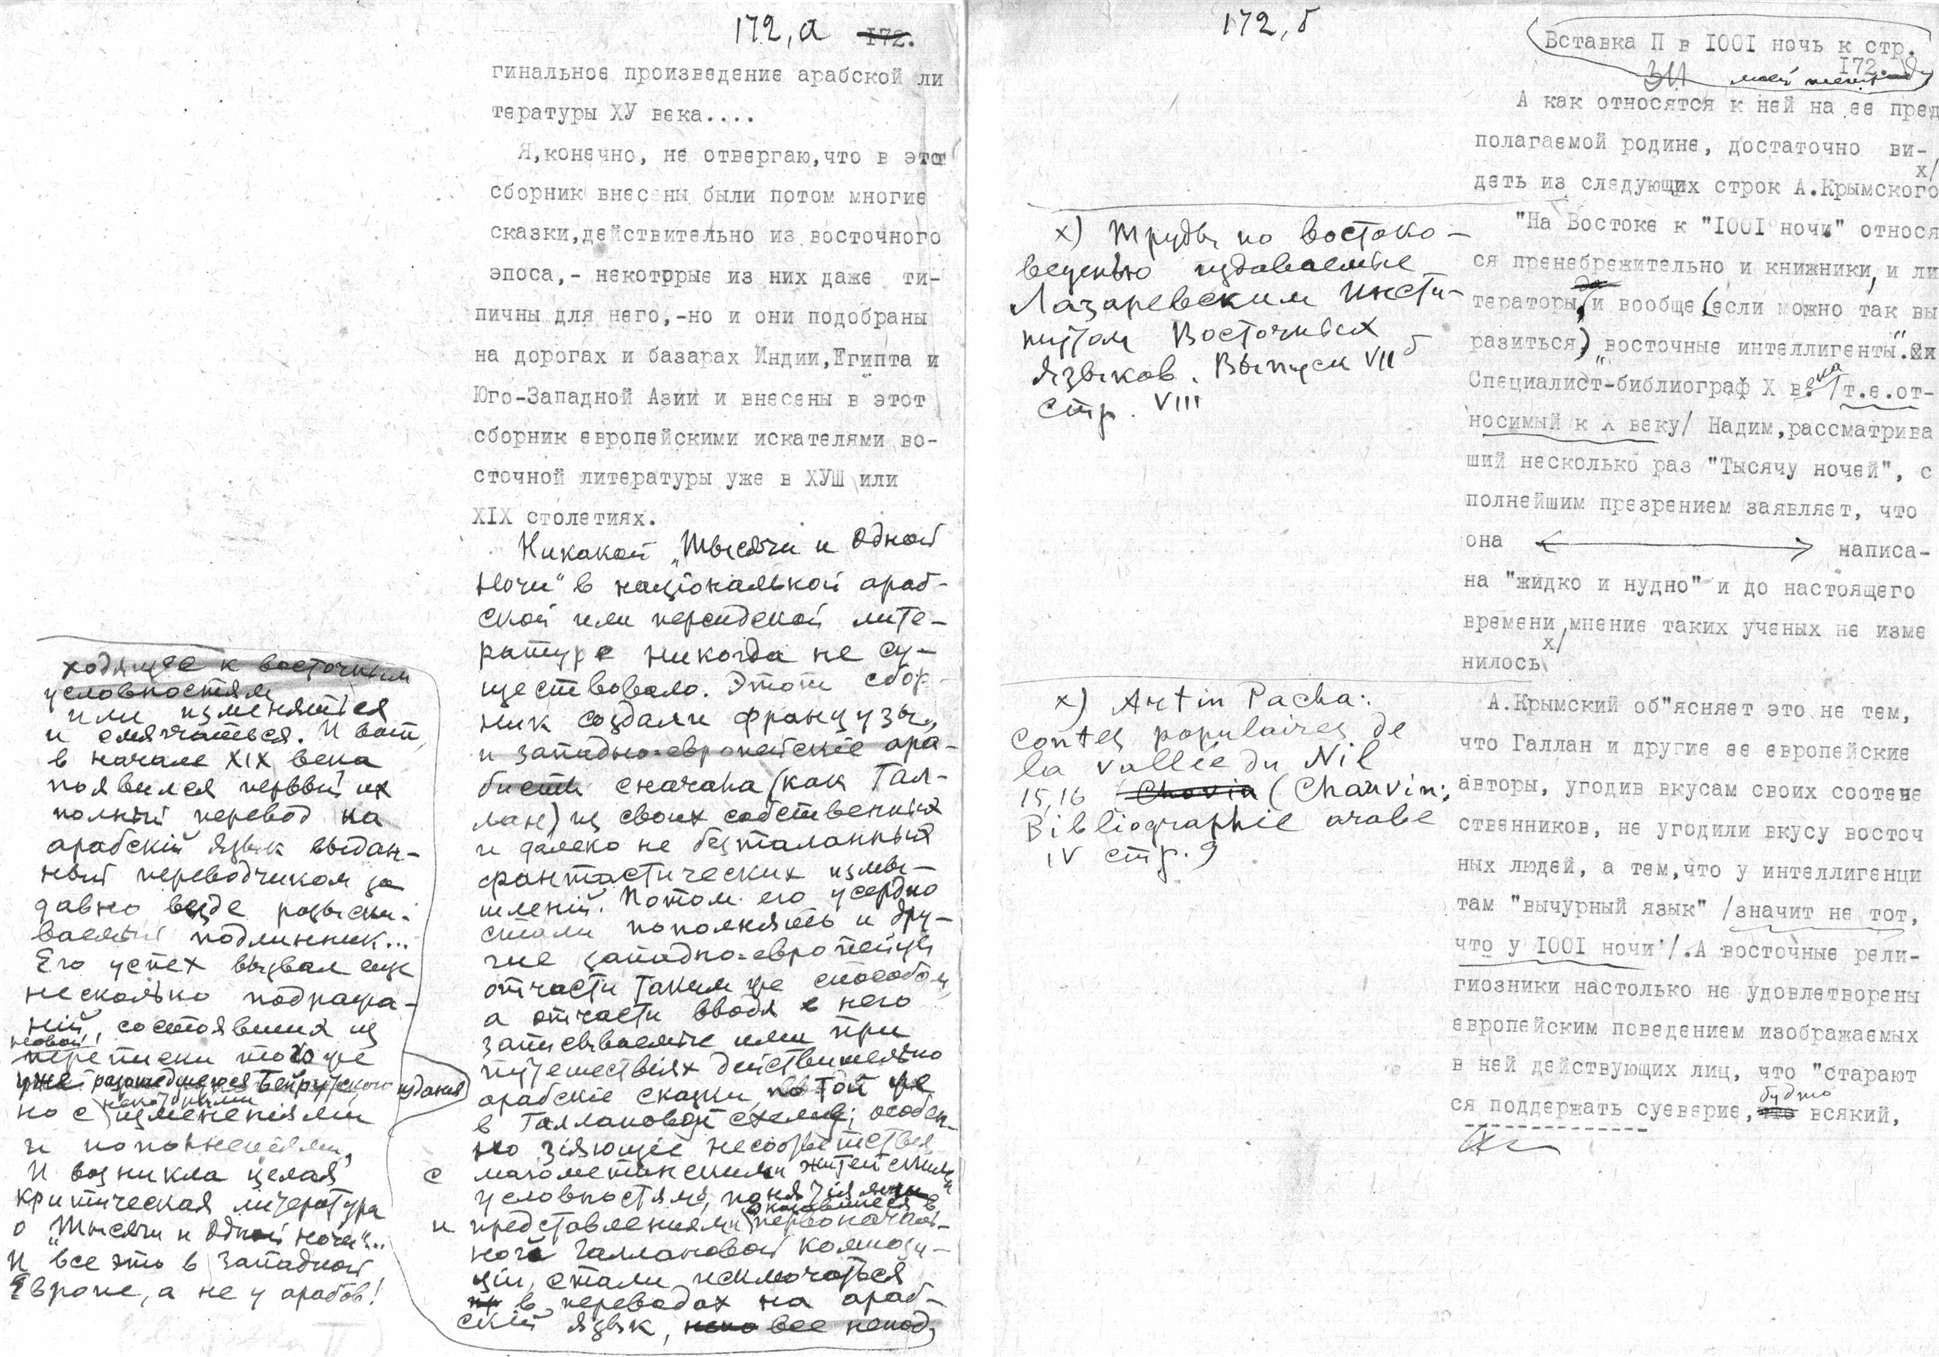 172,а 172.
гинальное произведение арабской ли
тературы ХУ века....
Я,конечно, не отвергаю,что в этот
сборник внесены были потом многие
сказки,действительно из восточного
эпоса,- некоторые из них даже ти-
пичны для него,-но и они подобраны
на дорогах и базарах Индии,Египта и
Юго-Западной Азии и внесены в этот
сборник европейскими искателями во-
сточной литературы уже в ХУШ или
XIX столетиях.
Никакой „Тысячи и Одной
Ночи" в национальной араб-
ской или персидской лите-
ратуре никогда не су-
ществовало. Этот сбор-
ник создали французы,
и западно-европейскіе ара-
бисты сначала (как Гал-
лан) из своих собственных
и далеко не бесталанных
фантастических измы-
шленій. Потом его усердно
стали пополнять и дру-
гие западно-европейцы
отчасти таким же способом,
а отчасти вводя в него
записываемые ими при
путешествіях действительно
арабскіе сказки по той же
в Галлановой схеме; особен-
но зіяющіе несоответствія
с магометанскими житейскими
условностями, понятіями
оказавшиеся в
и представлениями первоначаль-
ной Галлановой компози-
ціи, стали исключаться
в переводах на араб-
скій язык, все непод-
ходящее к восточным
условностям
или изменяться
и смягчаться. И вот,
в начале XIX века
появился первый их
полный перевод на
арабскій язык выдан-
ный переводчиком за
давно везде разыски-
ваемый подлинник...
Его успех вызвал еще
несколько подража-
ній, состоявших из
новой
переписки того же
уже разошедшегося Бейрутского издания
но с изменениями
и пополнениями,
И возникла целая
критическая литература
о „Тысячи и Одной ночи"...
И все это в Западной
Европе, а не у арабов!
172,б
Вставка П в I00I ночь к стр.
I72.
моей
А как относятся к ней на ее пред
полагаемой родине, достаточно ви-
х/
деть из следующих строк А.Крымского
"На Востоке к "I00I ночи" относя
ся пренебрежительно и книжники, и ли
тераторы, и вообще (если можно так вы
разиться) „восточные интеллигенты".
Специалист-библиограф X века /т.е.от-
носимый к X веку/ Надим,рассматрива
ший несколько раз "Тысячу ночей", с
полнейшим презрением заявляет, что
она написа-
на "жидко и нудно" и до настоящего
времени мнение таких ученых не изме
х/
нилось
А.Крымский об"ясняет это не тем,
что Галлан и другие ее европейские
авторы, угодив вкусам своих соотече
ственников, не угодили вкусу восточ
ных людей, а тем,что у интеллигенци
там "вычурный язык" /значит не тот,
что у I00I ночи'/.А восточные рели-
гиозники настолько не удовлетворены
европейским поведением изображаемых
в ней действующих лиц, что "старают
ся поддержать суеверие, будто всякий,
х) Труды по востоко-
ведению издаваемые
Лазаревским Инсти-
тутом Восточных
языков. Выпуск VII
стр. VIII
х) Artin Pacha:
contes populaires de
la Vallée du Nil
15,16 Chovin (Chauvin:
Bibliographie arabe
IV стр. 9